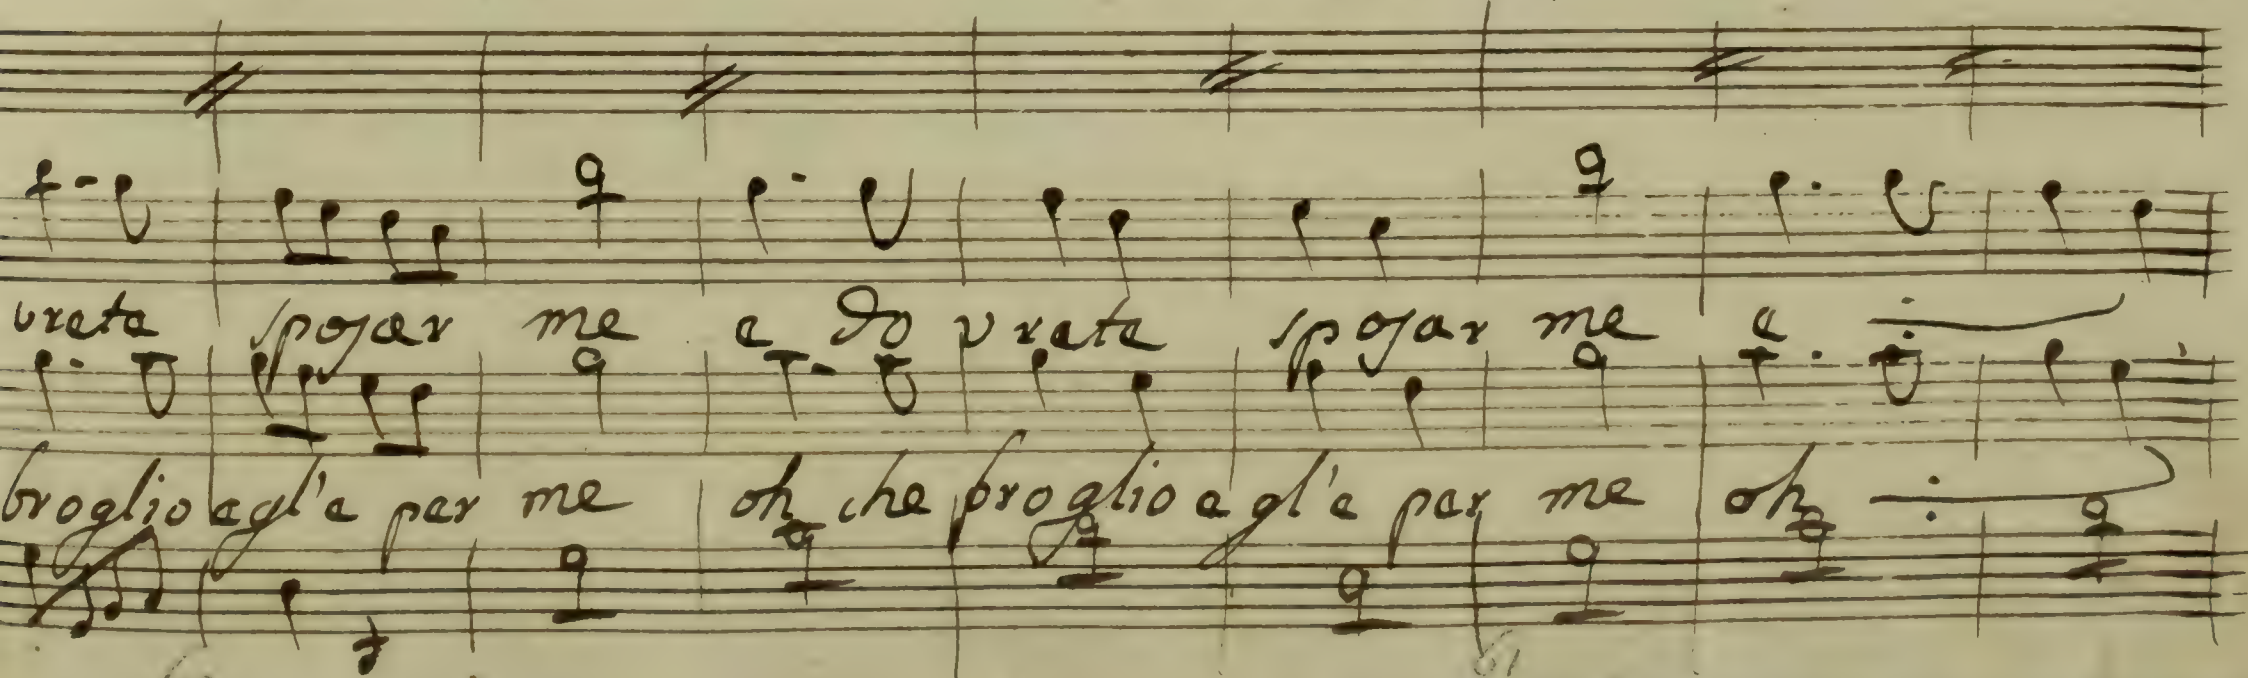 vrete sposar me e do vrete sposar me e
broglio egl'e per me oh che broglio egl'e per me oh